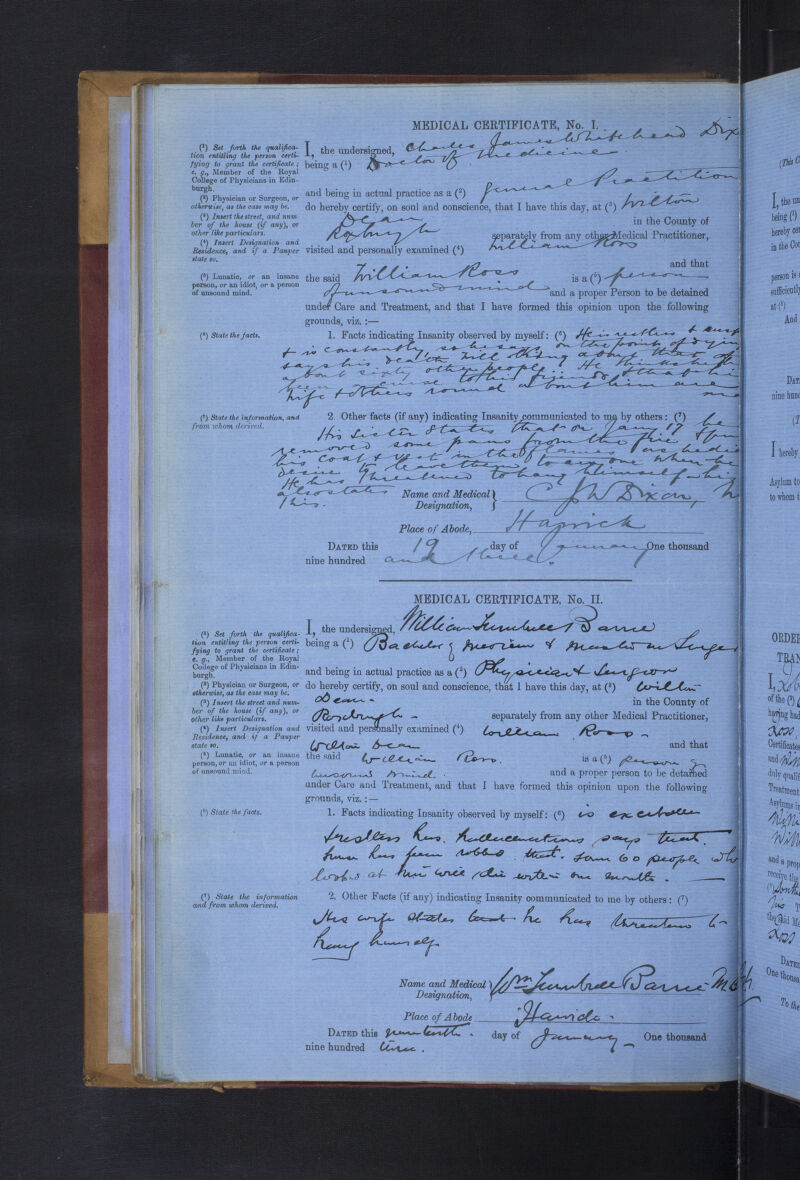 MEDICAL CERTIFICATE, No. I.
(¹) Set forth the qualifica-
tion entitling the person certi-
fying to grant the certificate;
e. g., Member of the Royal
College of Physicians in Edin-
burgh.
(²) Physician or Surgeon, or
otherwise, as the case may be.
(³) Insert the street, and num-
ber of the house (if any), or
other like particulars.
(⁴) Insert Designation and
Residence, and if a Pauper
state so.
(⁵) Lunatic, or an insane
person, or an idiot, or a person
of unsound mind.
(⁶) State the facts.
(⁷) State the information, and
from whom derived.
I, the undersigned, Charles James Whitehead Dix
being a (¹) Doctor of Medicine
and being in actual practice as a (²) general Practition
do hereby certify, on soul and conscience, that I have this day, at (³) Wilton
Dean in the County of
Roxburgh separately from any other Medical Practitioner,
visited and personally examined (⁴) William Ross
and that
the said William Ross is a (⁵) person
of unsound mind and a proper Person to be detained
under Care and Treatment, and that I have formed this opinion upon the following
grounds, viz. :—
1. Facts indicating Insanity observed by myself: (⁶) He is restless &
& is constantly so he says on the point of dying
says his death will bring along that of
about sixty other people. He thinks he
been a curse to his friends & that
wife & others round about him are
2. Other facts (if any) indicating Insanity communicated to me by others: (⁷)
His Sister states that on Jany 17 he
removed some pans from the fire &
his coat & vest in the flames as he
desire to leave them to any one when he
He has threatened to hang himself
also states
this.
Name and Medical
Designation, C J W Dixon,
Place of Abode, Hawick
DATED this 19 day of January One thousand
nine hundred and three.
MEDICAL CERTIFICATE, No. II.
(¹) Set forth the qualifica-
tion entitling the person certi-
fying to grant the certificate;
e. g., Member of the Royal
College of Physicians in Edin-
burgh.
(²) Physician or Surgeon, or
otherwise, as the case may be.
(³) Insert the street and num-
ber of the house (if any), or
other like particulars.
(⁴) Insert Designation and
Residence, and if a Pauper
state so.
(⁵) Lunatic, or an insane
person, or an idiot, or a person
of unsound mind.
(⁶) State the facts.
(⁷) State the information
and from whom derived.
I, the undersigned, William Turnbull Barrie
being a (¹) Bachelor of Medicine & Master in Surge
and being in actual practice as a (²) Physician & Surgeon
do hereby certify, on soul and conscience, that I have this day, at (³) Wilton
Dean in the County of
Roxburgh separately from any other Medical Practitioner,
visited and personally examined (⁴) William Ross
Wilton Dean and that
the said William Ross is a (⁵) person of
unsound mind. and a proper person to be detained
under Care and Treatment, and that I have formed this opinion upon the following
grounds, viz. :—
1. Facts indicating Insanity observed by myself: (⁶) is excitable
& restless has hallucinations says that
house has been robbed that some 60 people who
looked at him will die within one month.
2. Other Facts (if any) indicating Insanity communicated to me by others: (⁷)
His wife states that he has threatened to
hang himself
Name and Medical
Designation, Wm Turnbull Barrie M.B.
Place of Abode Hawick
DATED this nineteenth day of January One thousand
nine hundred three.
(This C
I, the un
being (¹)
hereby cer
in the Co
person is
sufficiently
at (⁵)
And
DAT
nine hun
I hereby
Asylum to
to whom t
ORDER
TRAN
I,
of the (²)
having had
Ross
Certificates
and
duly qualifi
Treatment
Asylums in
and a prop
receive the
the said Me
Ross
DATED
One thousa
To the